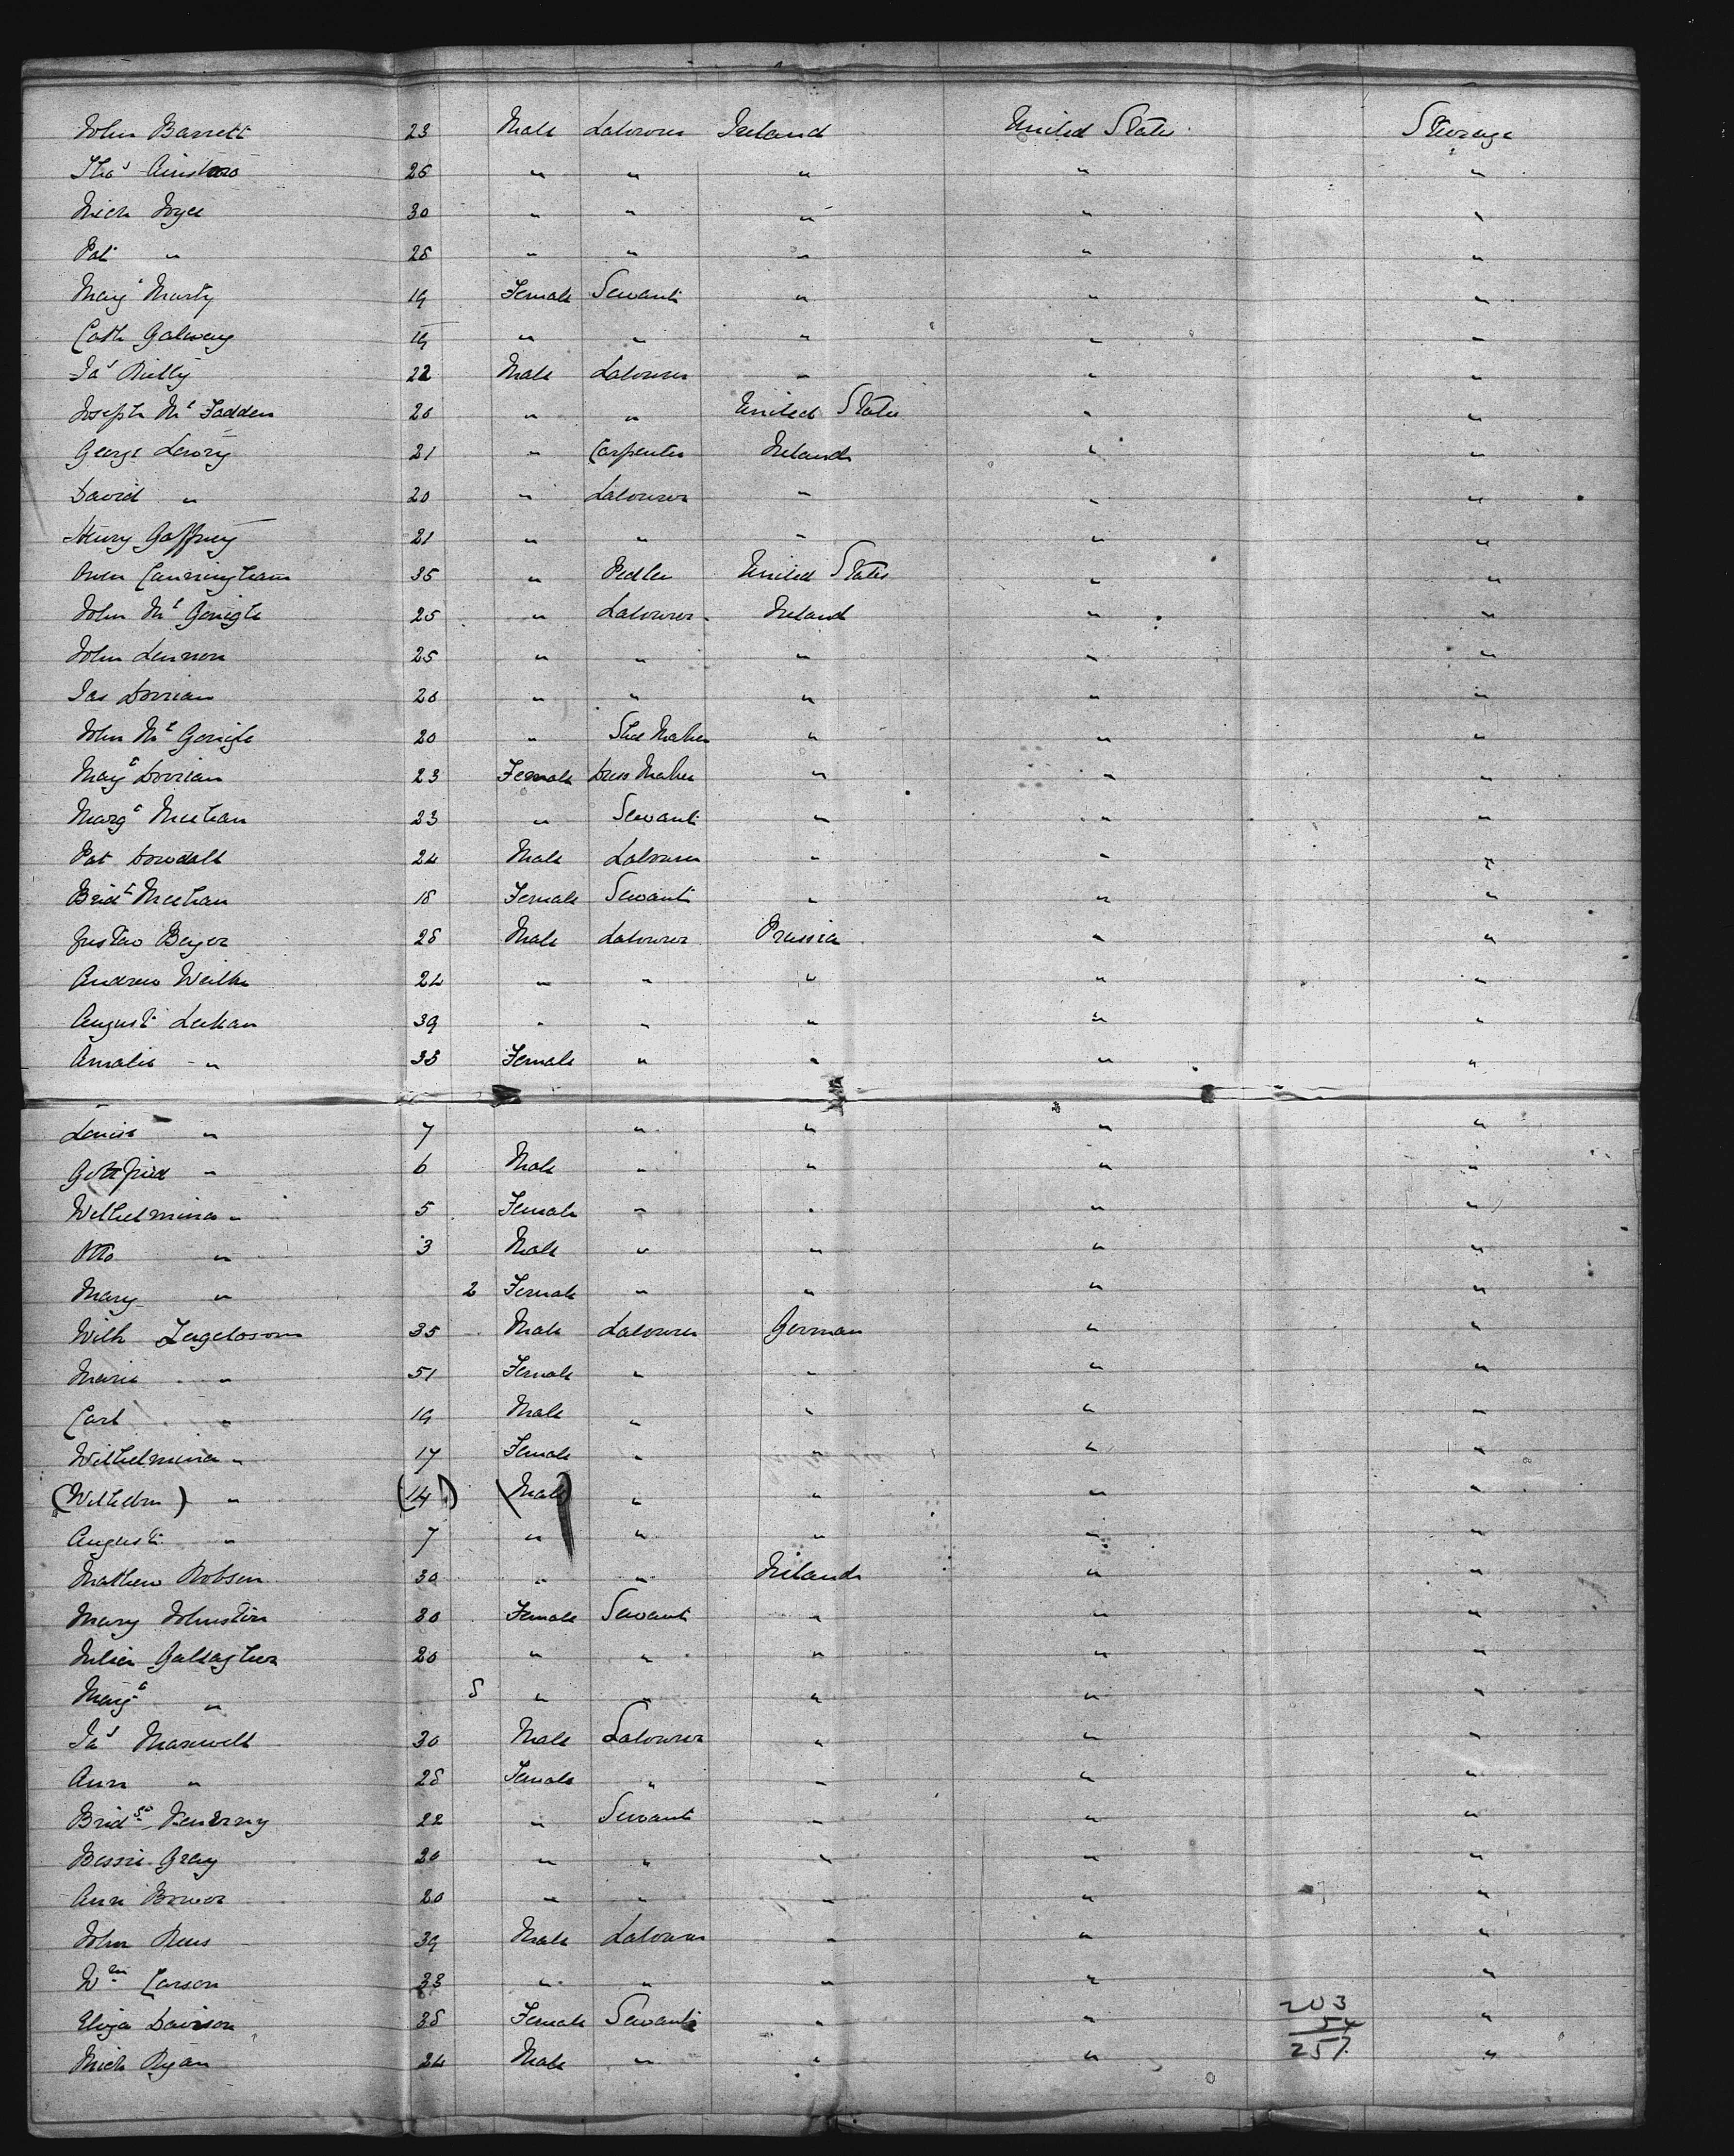 John Barrett 23 Male Labourer Ireland United States Steerage
Thos 26 " " " " "
Mich Joyce 30 " " " " "
Pat " 28 " " " " "
Margt Murty 19 Female Servant " " "
Cath Galway 19 " " " " "
Jas Reilly 22 Male Labourer " " "
Joseph Mc Fadden 20 " " United States " "
George Lavory 21 " Carpenter Ireland " "
David " 20 " Labourer " " "
Henry Gaffney 21 " " " " "
Owen Cunningham 35 " Pedler United States " "
John Mc Gonigle 25 " Labourer Ireland " "
John Lennon 25 " " " " "
Jas Dorrian 20 " " " " "
John Mc Gonigle 20 " Shoe Maker " " "
Margt Dorrian 23 Female Dress Maker " " "
Margt Meehan 23 " Servant " " "
Pat Dowdall 24 Male Labourer " " "
Bridt Meehan 18 Female Servant " " "
Gustav Beyer 28 Male Labourer Prussia " "
Andrew Weilke 24 " " " " "
August Lukan 39 " " " " "
Amalie " 33 Female " " " "
Louisa " 7 " " " "
Gottfried " 6 Male " " " "
Wilhelmina " 5 Female " " " "
Otto " 3 Male " " " "
Mary " 2 Female " " " "
Wilh 35 Male Labourer German " "
Marie " 51 Female " " " "
Carl " 19 Male " " " "
Wilhelmina " 17 Female " " " "
(Wilhelm) " (14) (Male) " " " "
August " 7 " " " " "
Mathew Robson 30 " " Ireland " "
Mary Johnston 30 Female Servant " " "
Julia Gallagher 20 " " " " "
Margt " 8 " " " " "
Jas Maxwell 30 Male Labourer " " "
Ann " 28 Female " " " "
Bridgt 22 " Servant " " "
Bessie Gray 20 " " " " "
Ann Brower 20 " " " " "
John Rees 39 Male Labourer " " "
Wm Carson 33 " " " " "
Eliza Davison 38 Female Servant " " 203 "
54
Mich Ryan 24 Male " " " 257 "